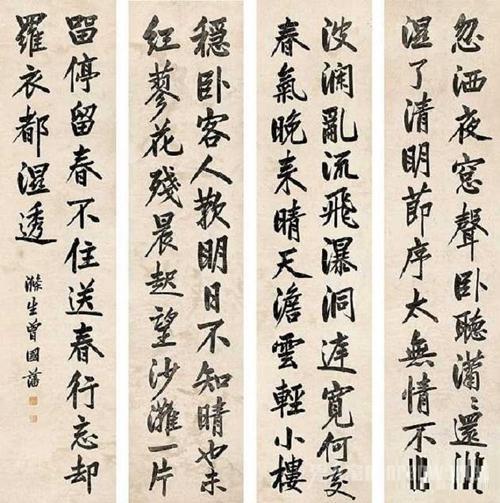 忽洒夜窓聲臥聽瀟〻還
濕了清明節序太無情不
波瀾亂流飛瀑洞達寬何交
春氣晚來晴天澹雲輕小樓
穩臥客人歎明日不知晴也未
紅蓼花殘晨起望沙灘一片
畱停留春不住送春行忘却
羅衣都濕透
滌生曾國藩